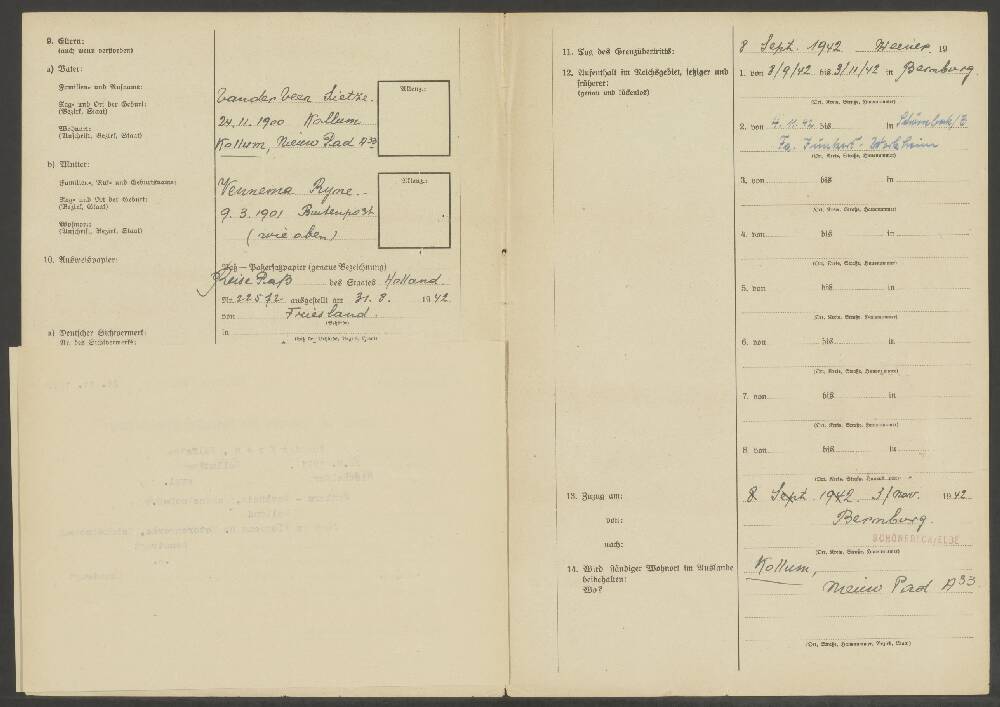 9. Eltern:
(auch wenn verstorben)
a) Vater:
Familien- und Rufname:
Tag- und Ort der Geburt:
(Bezirk, Staat)
Wohnort:
(Anschrift, Bezirk, Staat)
Vander Veen Sietze.
24.11.1900 Kollum
Kollum, Nieuw Pad A 33
Altenz.:
b) Mutter:
Familien-, Ruf- und Geburtsname:
Tag- und Ort der Geburt:
(Bezirk, Staat)
Wohnort:
(Anschrift, Bezirk, Staat)
Vennema Ryme.
9.3.1901 Buitenpost
(wie oben)
Altenz.:
10. Ausweispapier:
Paß — Paßersatzpapier (genaue Bezeichnung)
Reise Paß des Staates Holland.
Nr. 22572 ausgestellt am 31. 8. 1942
von Friesland.
(Behörde)
in
a) Deutscher Sichtvermerk:
Nr. des Sichtvermerks:
11. Tag des Grenzübertritts:
8 Sept. 1942 Weener 19
12. Aufenthalt im Reichsgebiet, jetziger und
früherer:
(genau und lückenlos)
1. von 8/9/42 bis 3/11/42 in Bernburg.
(Ort, Kreis, Straße, Hausnummer)
2. von 4.11.42 bis in
Fa. Junkers
(Ort, Kreis, Straße, Hausnummer)
3. von bis in
(Ort, Kreis, Straße, Hausnummer)
4. von bis in
(Ort, Kreis, Straße, Hausnummer)
5. von bis in
(Ort, Kreis, Straße, Hausnummer)
6. von bis in
(Ort, Kreis, Straße, Hausnummer)
7. von bis in
(Ort, Kreis, Straße, Hausnummer)
8. von bis in
(Ort, Kreis, Straße, Hausnummer)
13. Zuzug am:
8 Sept. 1942 3/nov. 1942
von:
Bernburg.
nach:
SCHÖNEBECK/ELBE
(Ort, Kreis, Straße, Hausnummer)
14. Wird ständiger Wohnort im Auslande
beibehalten:
Wo?
Kollum,
Nieuw Pad A 33
(Ort, Straße, Hausnummer, Bezirk, Staat)